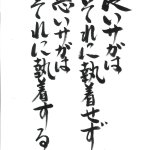 良いサガは
それに執着せず
悪いサガは
それに執着する